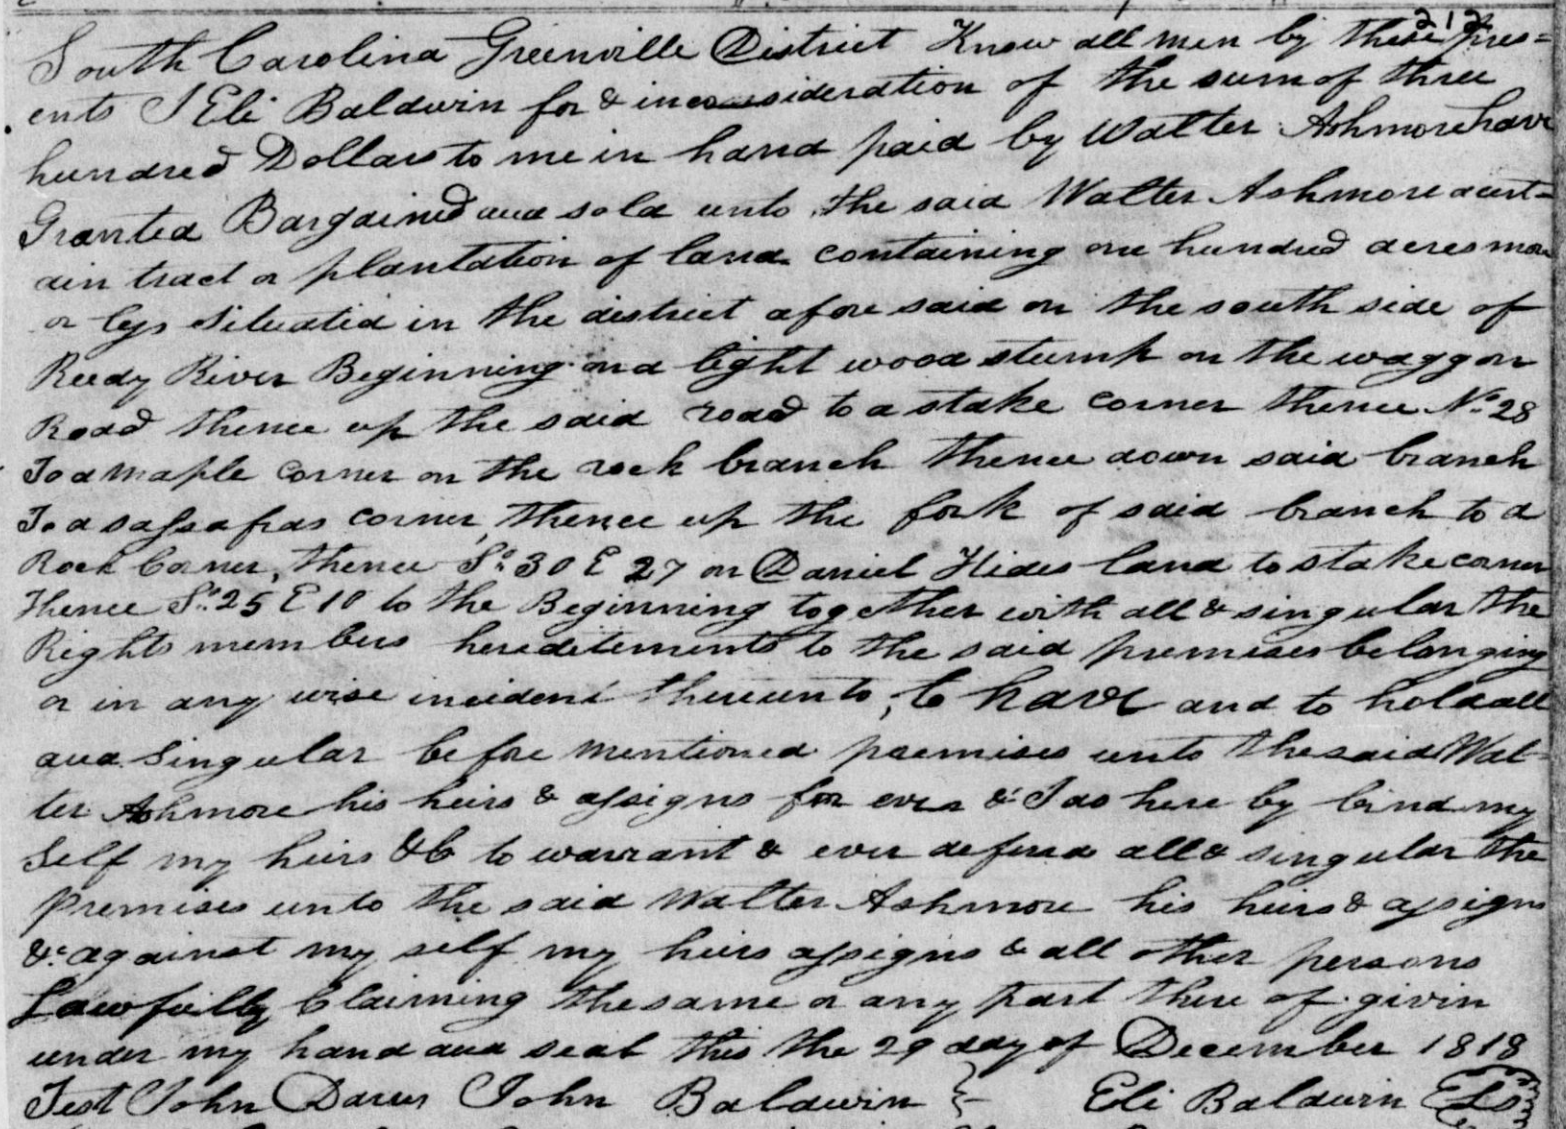 212
South Carolina Greenville District Know all men by these pres=
ents I Eli Baldwin for & in consideration of the sum of three
hundred Dollars to me in hand paid by Walter Ashmore have
Granted Bargained and sold unto the said Walter Ashmore a cert=
ain tract or plantation of land containing one hundred acres more
or less situated in the district afore said on the south side of
Reedy River Beginning on a light wood stump on the waggon
Road thence up the said road to a stake corner thence No. 28
To a maple corner on the rock branch thence down said branch
To a sassafras corner, thence up the fork of said branch to a
Rock Corner, thence So. 30 E 27 on Daniel Hides land to stake corner
Thence So. 25 E 10 to the Beginning together with all & singular the
Rights members hereditements to the said premises belonging
or in any wise incident thereunto, to have and to hold all
and singular before mentioned premises unto the said Wal=
ter Ashmore his heirs & assigns for ever & I do here by bind my
self my heirs &C to warrant & ever defend all & singular the
premises unto the said Walter Ashmore his heirs & assigns
&c against my self my heirs assigns & all other persons
Lawfully Claiming the same or any part there of. givin
under my hand and seal this the 29 day of December 1818
Test John John Baldwin } Eli Baldwin LS